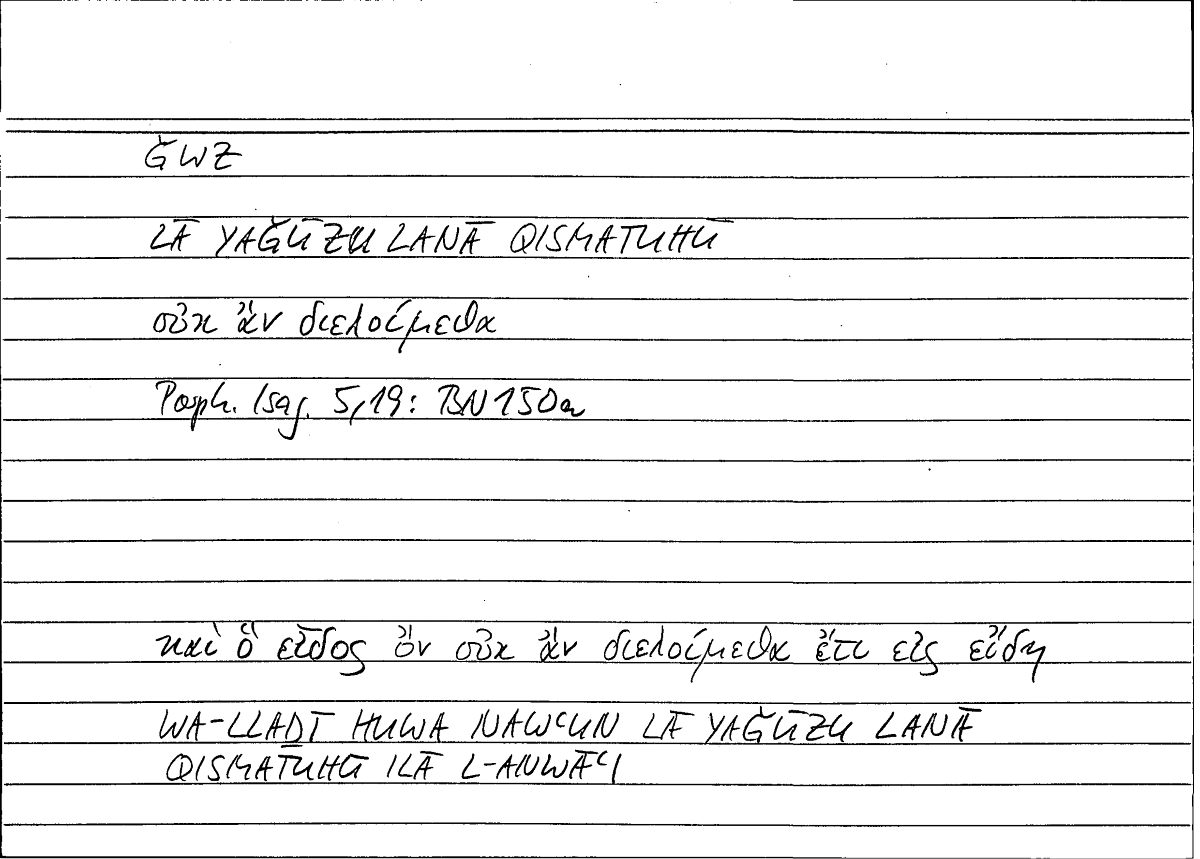 ǦWZ
LĀ YAǦŪZU LANĀ QISMATUHŪ
οὐκ ἂν διελοίμεθα
Porph. Isag. 5,19: BN 150a
καὶ ὃ εἶδος ὂν οὐκ ἂν διελοίμεθα ἔτι εἰς εἴδη
WA-LLADĪ HUWA NAWʿUN LĀ YAǦŪZU LANĀ
QISMATUHŪ ILĀ L-ANWĀʿI